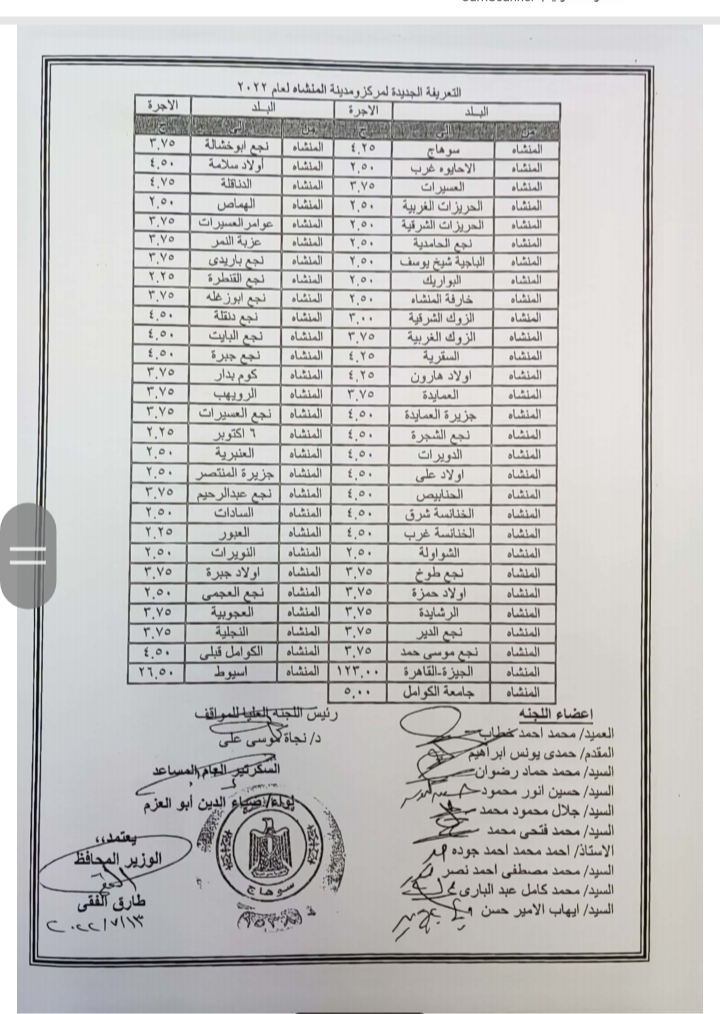 التعريفة الجديدة لمركز ومدينة المنشاه لعام ٢٠٢٢
البلد الاجرة البلد الاجرة
من الى ج من الى ج
المنشاه سوهاج ٤,٢٥ المنشاه نجع ابوخشالة ٣,٧٥
المنشاه الاحايوه غرب ٢,٥٠ المنشاه أولاد سلامة ٤,٥٠
المنشاه العسيرات ٣,٧٥ المنشاه الدناقلة ٤,٧٥
المنشاه الحريزات الغربية ٢,٥٠ المنشاه الهماص ٢,٥٠
المنشاه الحريزات الشرقية ٢,٥٠ المنشاه عوامر العسيرات ٣,٧٥
المنشاه نجع الحامدية ٢,٥٠ المنشاه عزبة النمر ٣,٧٥
المنشاه الباجية شيخ يوسف ٢,٥٠ المنشاه نجع باريدى ٣,٧٥
المنشاه البواريك ٢,٥٠ المنشاه نجع القنطرة ٢,٢٥
المنشاه خارفة المنشاه ٢,٥٠ المنشاه نجع ابوزغله ٣,٧٥
المنشاه الزوك الشرقية ٣,٠٠ المنشاه نجع دنقلة ٤,٥٠
المنشاه الزوك الغربية ٣,٧٥ المنشاه نجع البايت ٤,٥٠
المنشاه السقرية ٤,٢٥ المنشاه نجع جبرة ٤,٥٠
المنشاه اولاد هارون ٤,٢٥ المنشاه كوم بدار ٣,٧٥
المنشاه العمايدة ٣,٧٥ المنشاه الرويهب ٣,٧٥
المنشاه جزيرة العمايدة ٤,٥٠ المنشاه نجع العسيرات ٣,٧٥
المنشاه نجع الشجرة ٤,٥٠ المنشاه ٦ اكتوبر ٢,٢٥
المنشاه الدويرات ٤,٥٠ المنشاه العنبرية ٢,٥٠
المنشاه اولاد على ٤,٥٠ المنشاه جزيرة المنتصر ٢,٥٠
المنشاه الحنابيص ٤,٥٠ المنشاه نجع عبدالرحيم ٣,٧٥
المنشاه الخنانسة شرق ٤,٥٠ المنشاه السادات ٢,٥٠
المنشاه الخنانسة غرب ٤,٥٠ المنشاه العبور ٢,٢٥
المنشاه الشواولة ٢,٥٠ المنشاه النويرات ٢,٥٠
المنشاه نجع طوخ ٣,٧٥ المنشاه اولاد جبرة ٣,٧٥
المنشاه اولاد حمزة ٣,٧٥ المنشاه نجع العجمى ٢,٥٠
المنشاه الرشايدة ٣,٧٥ المنشاه العجوبية ٣,٧٥
المنشاه نجع الدير ٣,٧٥ المنشاه النجلية ٣,٧٥
المنشاه نجع موسى حمد ٣,٧٥ المنشاه الكوامل قبلى ٤,٥٠
المنشاه الجيزة-القاهرة ١٢٣,٠٠ المنشاه اسيوط ٢٦,٥٠
المنشاه جامعة الكوامل ٥,٠٠
إعضاء اللجنه
العميد/ محمد احمد خطاب
المقدم/ حمدى يونس ابراهيم
السيد/ محمد حماد رضوان
السيد/ حسين انور محمود
السيد/ جلال محمود محمد
السيد/ محمد فتحى محمد
الاستاذ/ احمد محمد احمد جوده
السيد/ محمد مصطفى احمد نصر
السيد/ محمد كامل عبد البارى
السيد/ ايهاب الامير حسن
رئيس اللجنه العليا للمواقف
د/ نجاة موسى على
السكرتير العام المساعد
لواء/ ضياء الدين أبو العزم
سوهاج
يعتمد،،
الوزير المحافظ
طارق الفقى
٢٠٢٢/٧/١٣